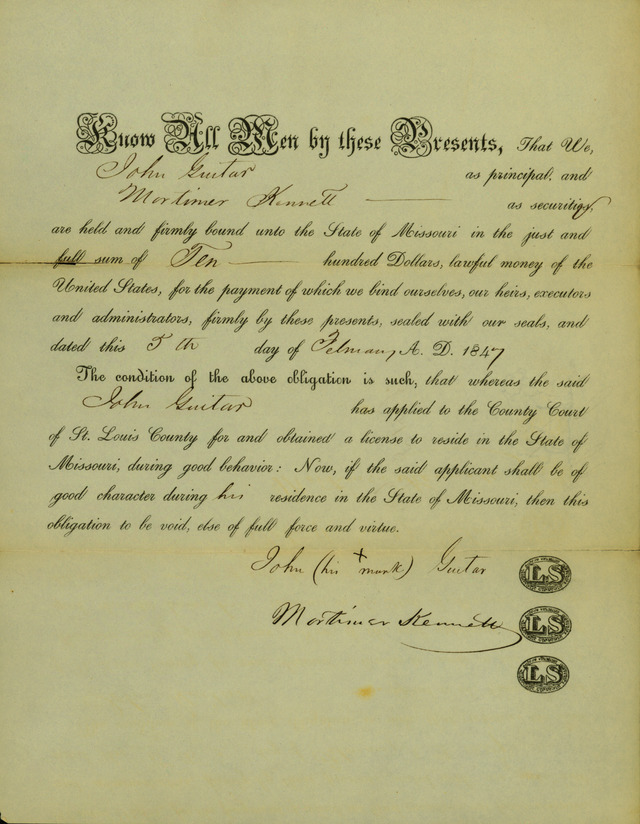 Know All Men by these Presents, That We,
John Guitar as principal, and
Mortimer Kennett as securities,
are held and firmly bound unto the State of Missouri in the just and
full sum of Ten hundred Dollars, lawful money of the
United States, for the payment of which we bind ourselves, our heirs, executors
and administrators, firmly by these presents, sealed with our seals, and
dated this 5th day of February A. D. 1847
The condition of the above obligation is such, that whereas the said
John Guitar has applied to the County Court
of St. Louis County for and obtained a license to reside in the State of
Missouri, during good behavior: Now, if the said applicant shall be of
good character during his residence in the State of Missouri, then this
obligation to be void, else of full force and virtue.
John (his + mark) Guitar LS
Mortimer Kennett LS
LS